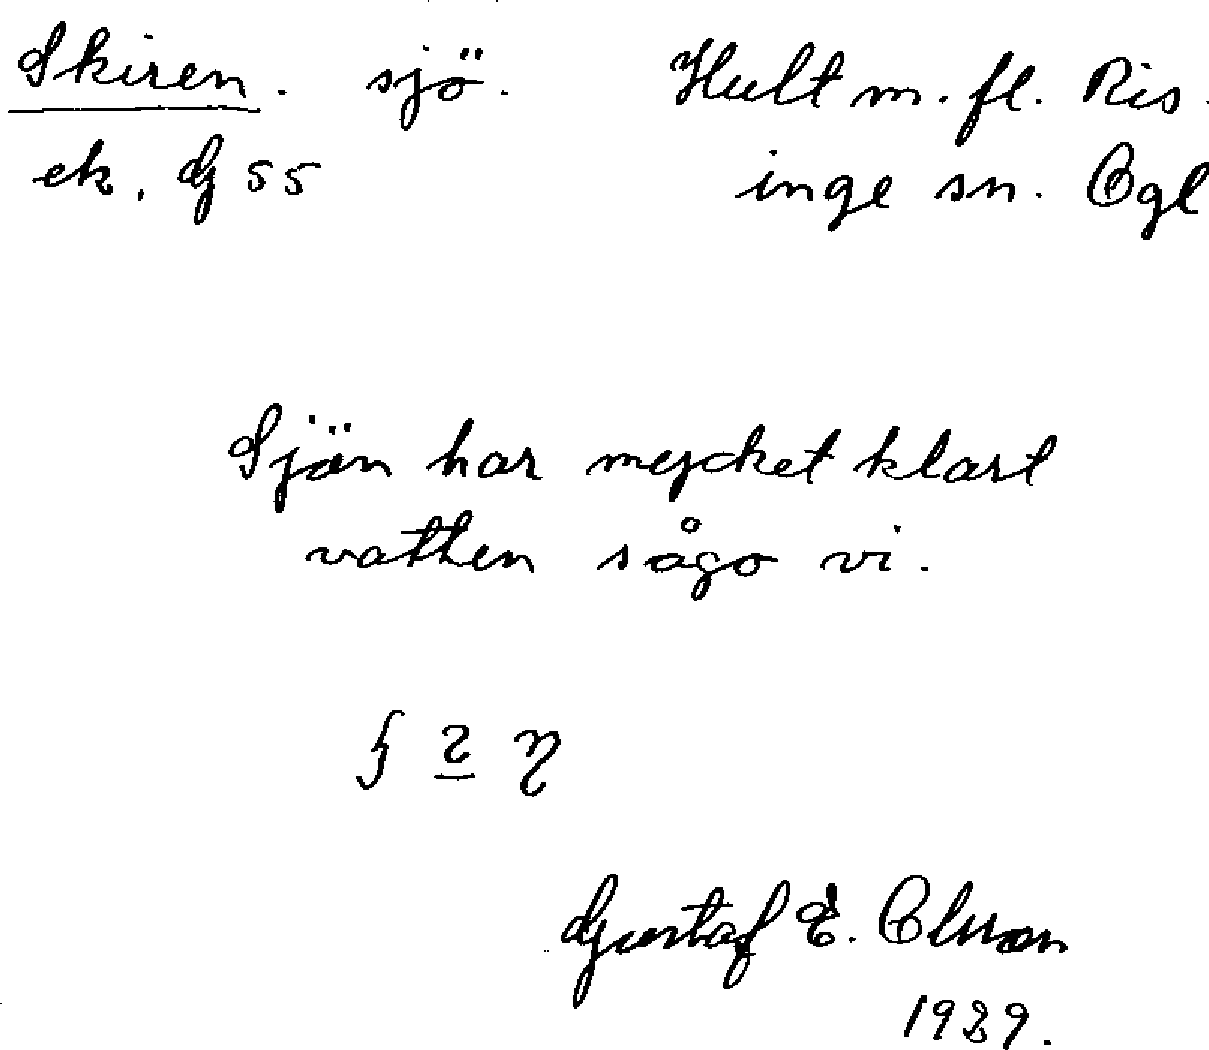 Skiren. sjö. Hult m. fl. Ris
ek. G 55 inge sn. Ögl
Sjön har mycket klart
vatten sågo vi.
Gustaf E. Olsson
1929.